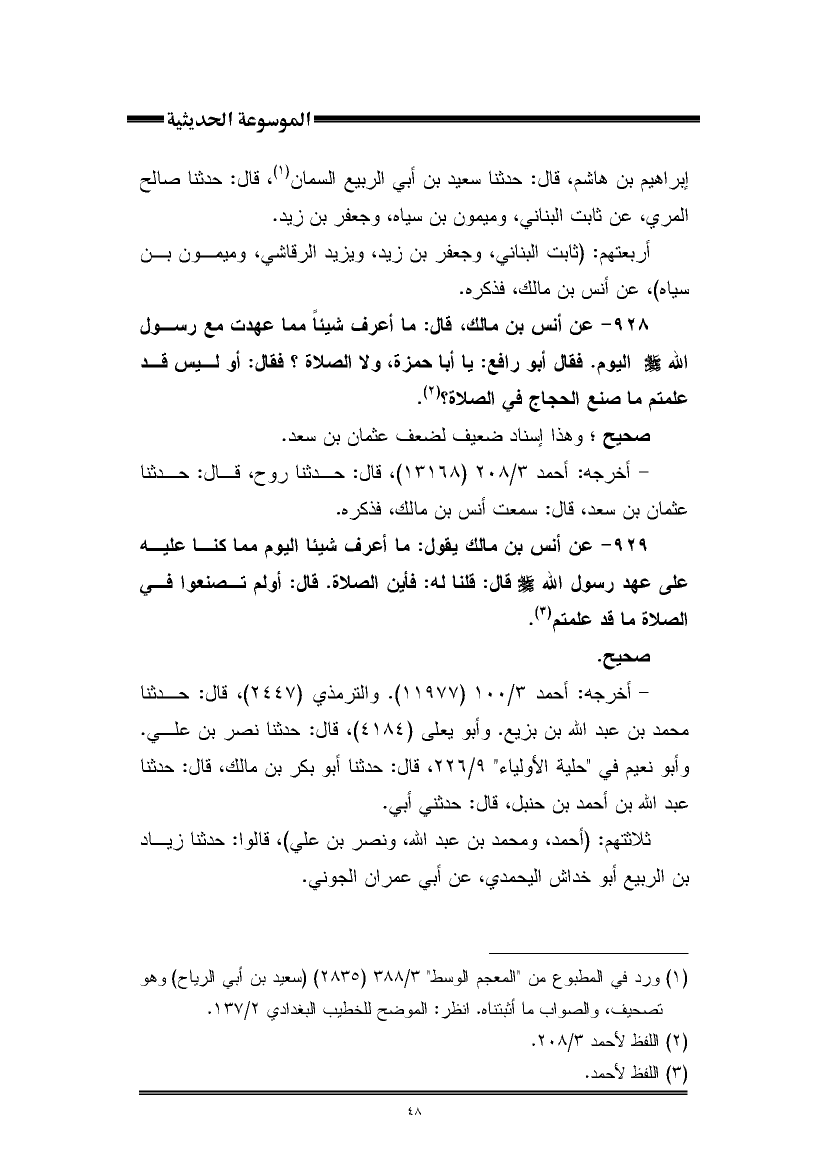 الموسوعة الحديثية
إبراهيم بن هاشم، قال: حدثنا سعيد بن أبي الربيع السمان(١)، قال: حدثنا صالح
المري، عن ثابت البناني، وميمون بن سياه، وجعفر بن زيد.
أربعتهم: (ثابت البناني، وجعفر بن زيد، ويزيد الرقاشي، وميمـــون بـــن
سياه)، عن أنس بن مالك، فذكره.
٩٢٨- عن أنس بن مالك، قال: ما أعرف شيئاً مما عهدت مع رســـول
الله ﷺ اليوم. فقال أبو رافع: يا أبا حمزة، ولا الصلاة ؟ فقال: أو لـــيس قـــد
علمتم ما صنع الحجاج في الصلاة؟(٢).
صحيح ؛ وهذا إسناد ضعيف لضعف عثمان بن سعد.
- أخرجه: أحمد ٢٠٨/٣ (١٣١٦٨)، قال: حـــدثنا روح، قـــال: حـــدثنا
عثمان بن سعد، قال: سمعت أنس بن مالك، فذكره.
٩٢٩- عن أنس بن مالك يقول: ما أعرف شيئا اليوم مما كنـــا عليـــه
على عهد رسول الله ﷺ قال: قلنا له: فأين الصلاة. قال: أولم تـــصنعوا فـــي
الصلاة ما قد علمتم(٣).
صحيح.
- أخرجه: أحمد ١٠٠/٣ (١١٩٧٧). والترمذي (٢٤٤٧)، قال: حـــدثنا
محمد بن عبد الله بن بزيع. وأبو يعلى (٤١٨٤)، قال: حدثنا نصر بن علـــي.
وأبو نعيم في "حلية الأولياء" ٢٢٦/٩، قال: حدثنا أبو بكر بن مالك، قال: حدثنا
عبد الله بن أحمد بن حنبل، قال: حدثني أبي.
ثلاثتهم: (أحمد، ومحمد بن عبد الله، ونصر بن علي)، قالوا: حدثنا زيـــاد
بن الربيع أبو خداش اليحمدي، عن أبي عمران الجوني.
(١) ورد في المطبوع من "المعجم الوسط" ٣٨٨/٣ (٢٨٣٥) (سعيد بن أبي الرياح) وهو
تصحيف، والصواب ما أثبتناه. انظر: الموضح للخطيب البغدادي ١٣٧/٢.
(٢) اللفظ لأحمد ٢٠٨/٣.
(٣) اللفظ لأحمد.
٤٨